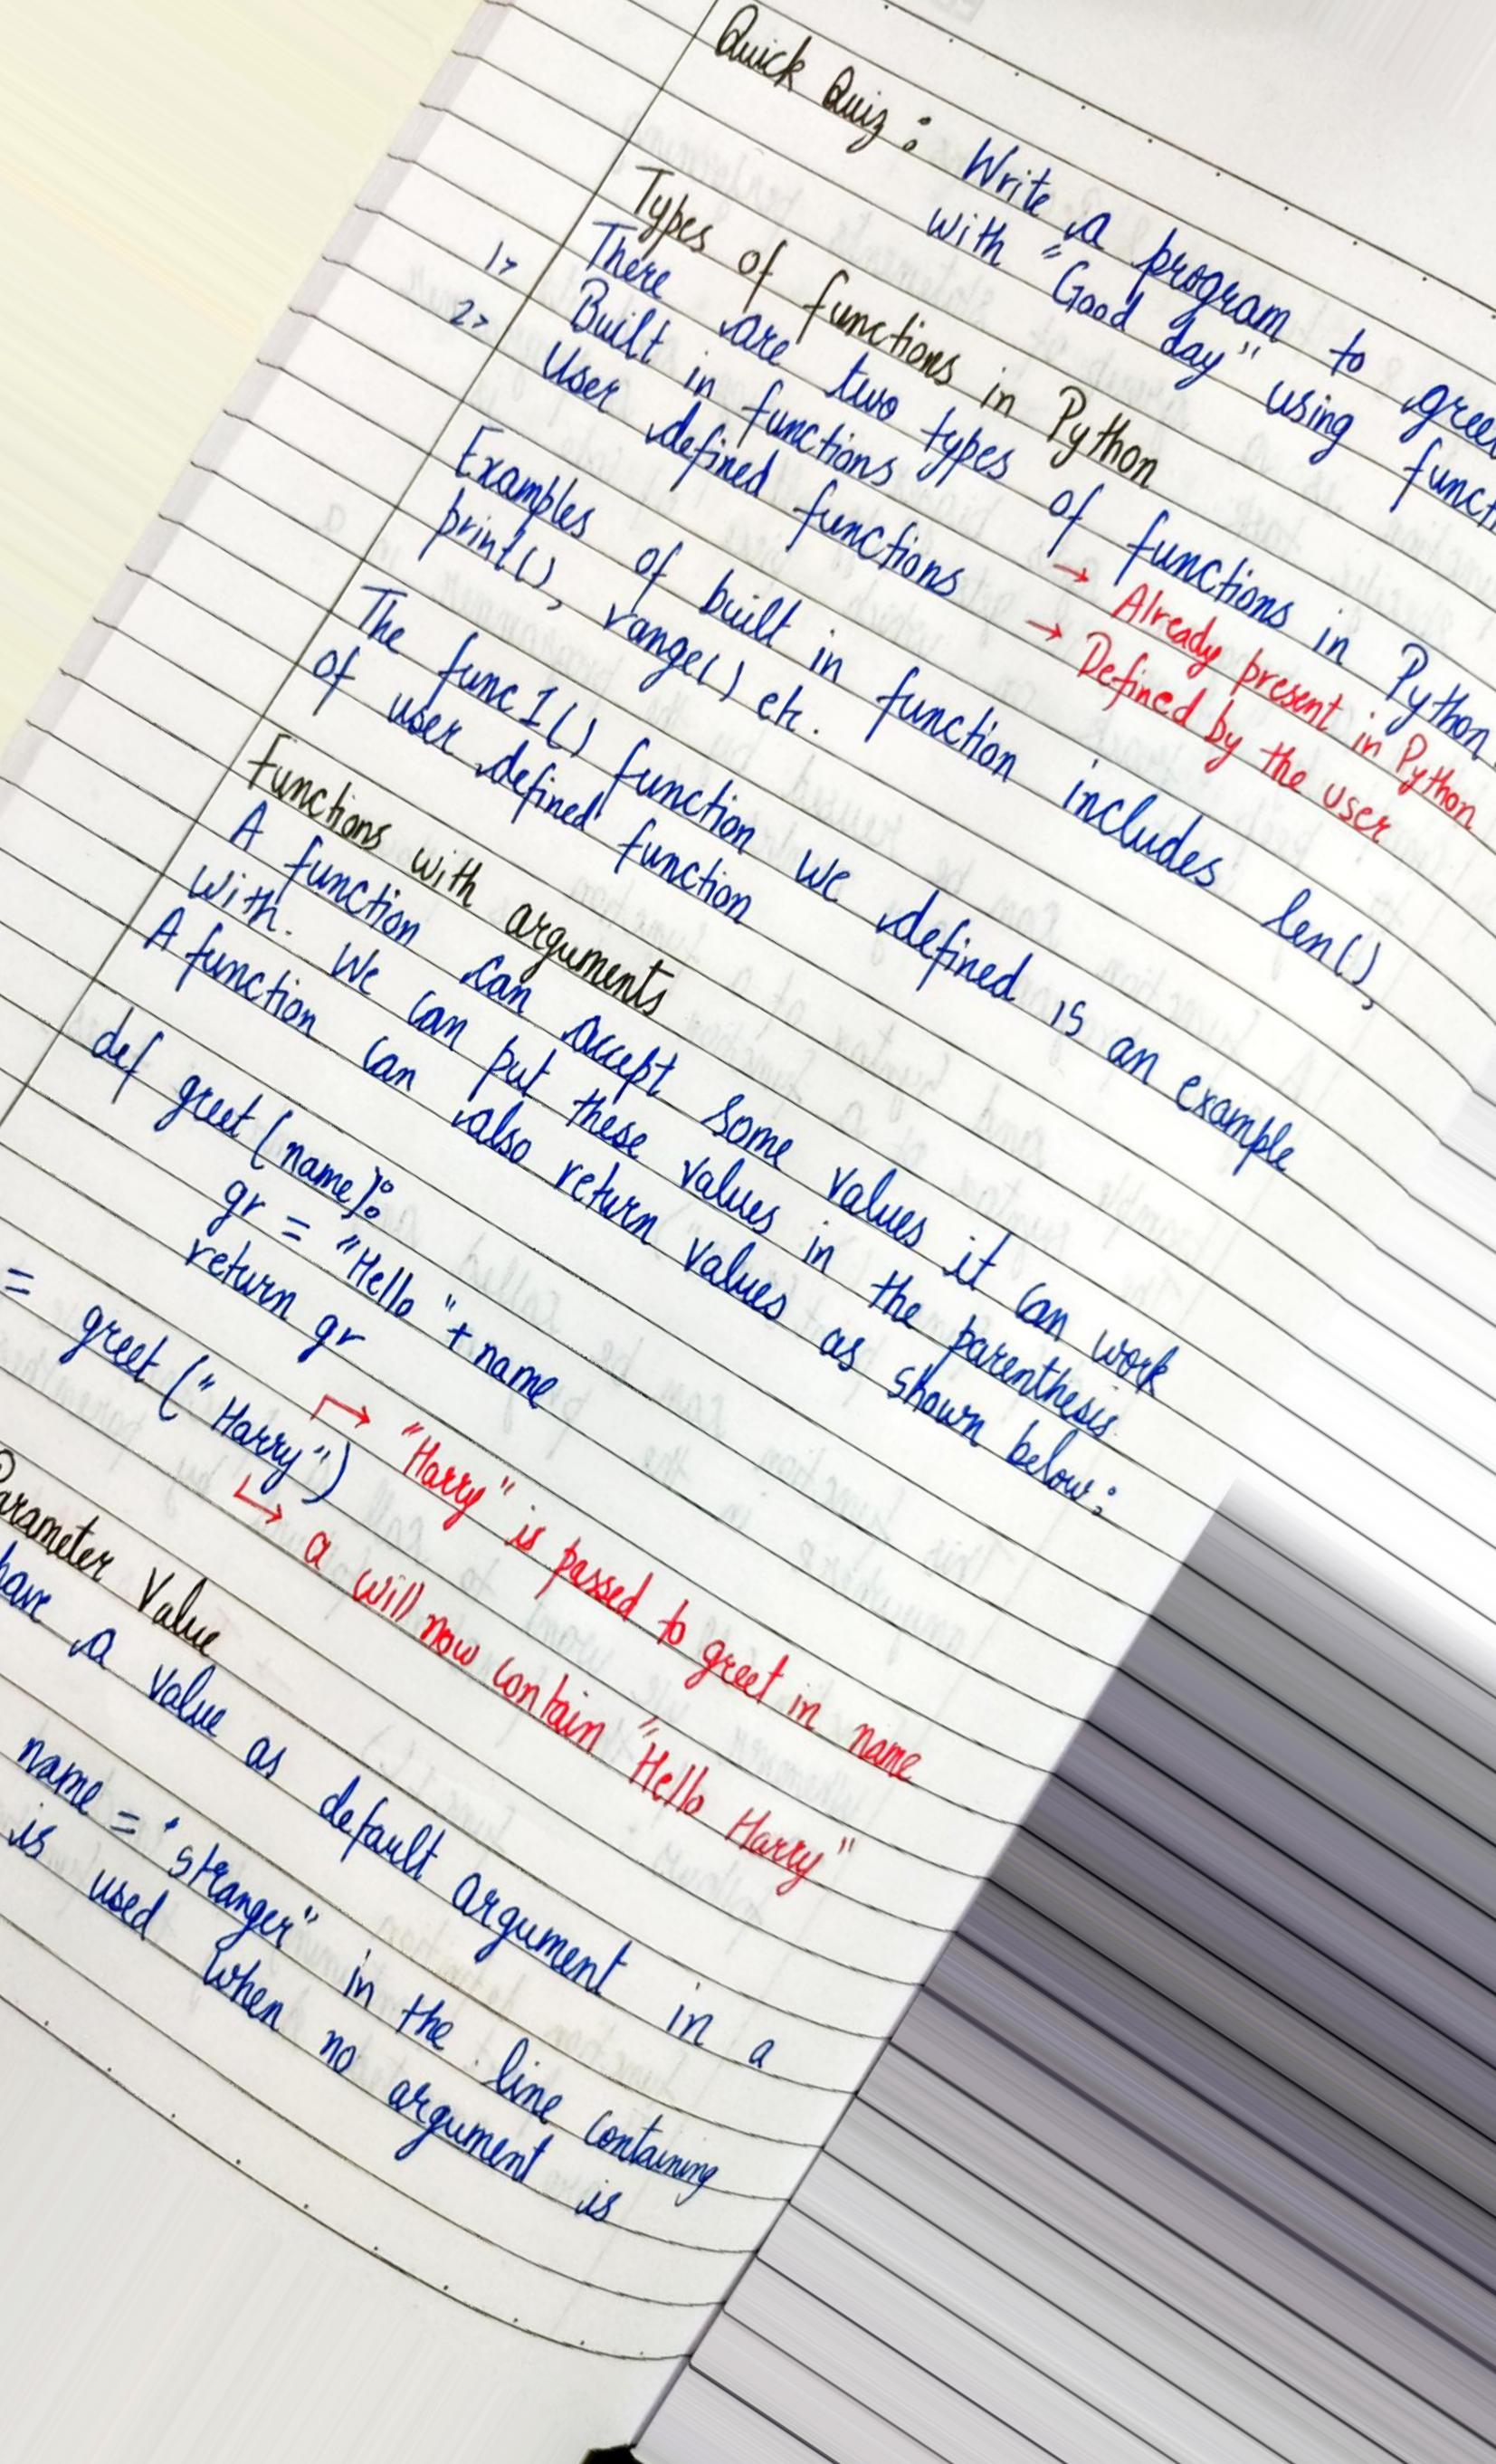 Quick Quiz : Write a program to
with "Good day" using
Types of functions in Python
There are two types of functions in Python.
1> Built in functions → Already present in Python
2> User defined functions → Defined by the user
Examples of built in function includes len(),
print(), range() etc.
The func1() function we defined is an example
of user defined function
Functions with arguments
A function can accept some values it can work
with. We can put these values in the parenthesis.
A function can also return values as shown below:
def greet (name):
gr = "Hello " + name
return gr
→ "Harry" is passed to greet in name
= greet ("Harry")
→ a will now contain "Hello Harry"
Parameter Value
have a value as default argument in a
name = "stranger" in the line containing
is used when no argument is